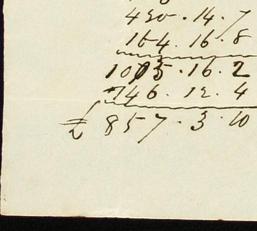 450 . 14 . 7
164 . 16 . 8
1003 . 16 . 2
146 . 12 . 4
£ 857 . 3 . 10